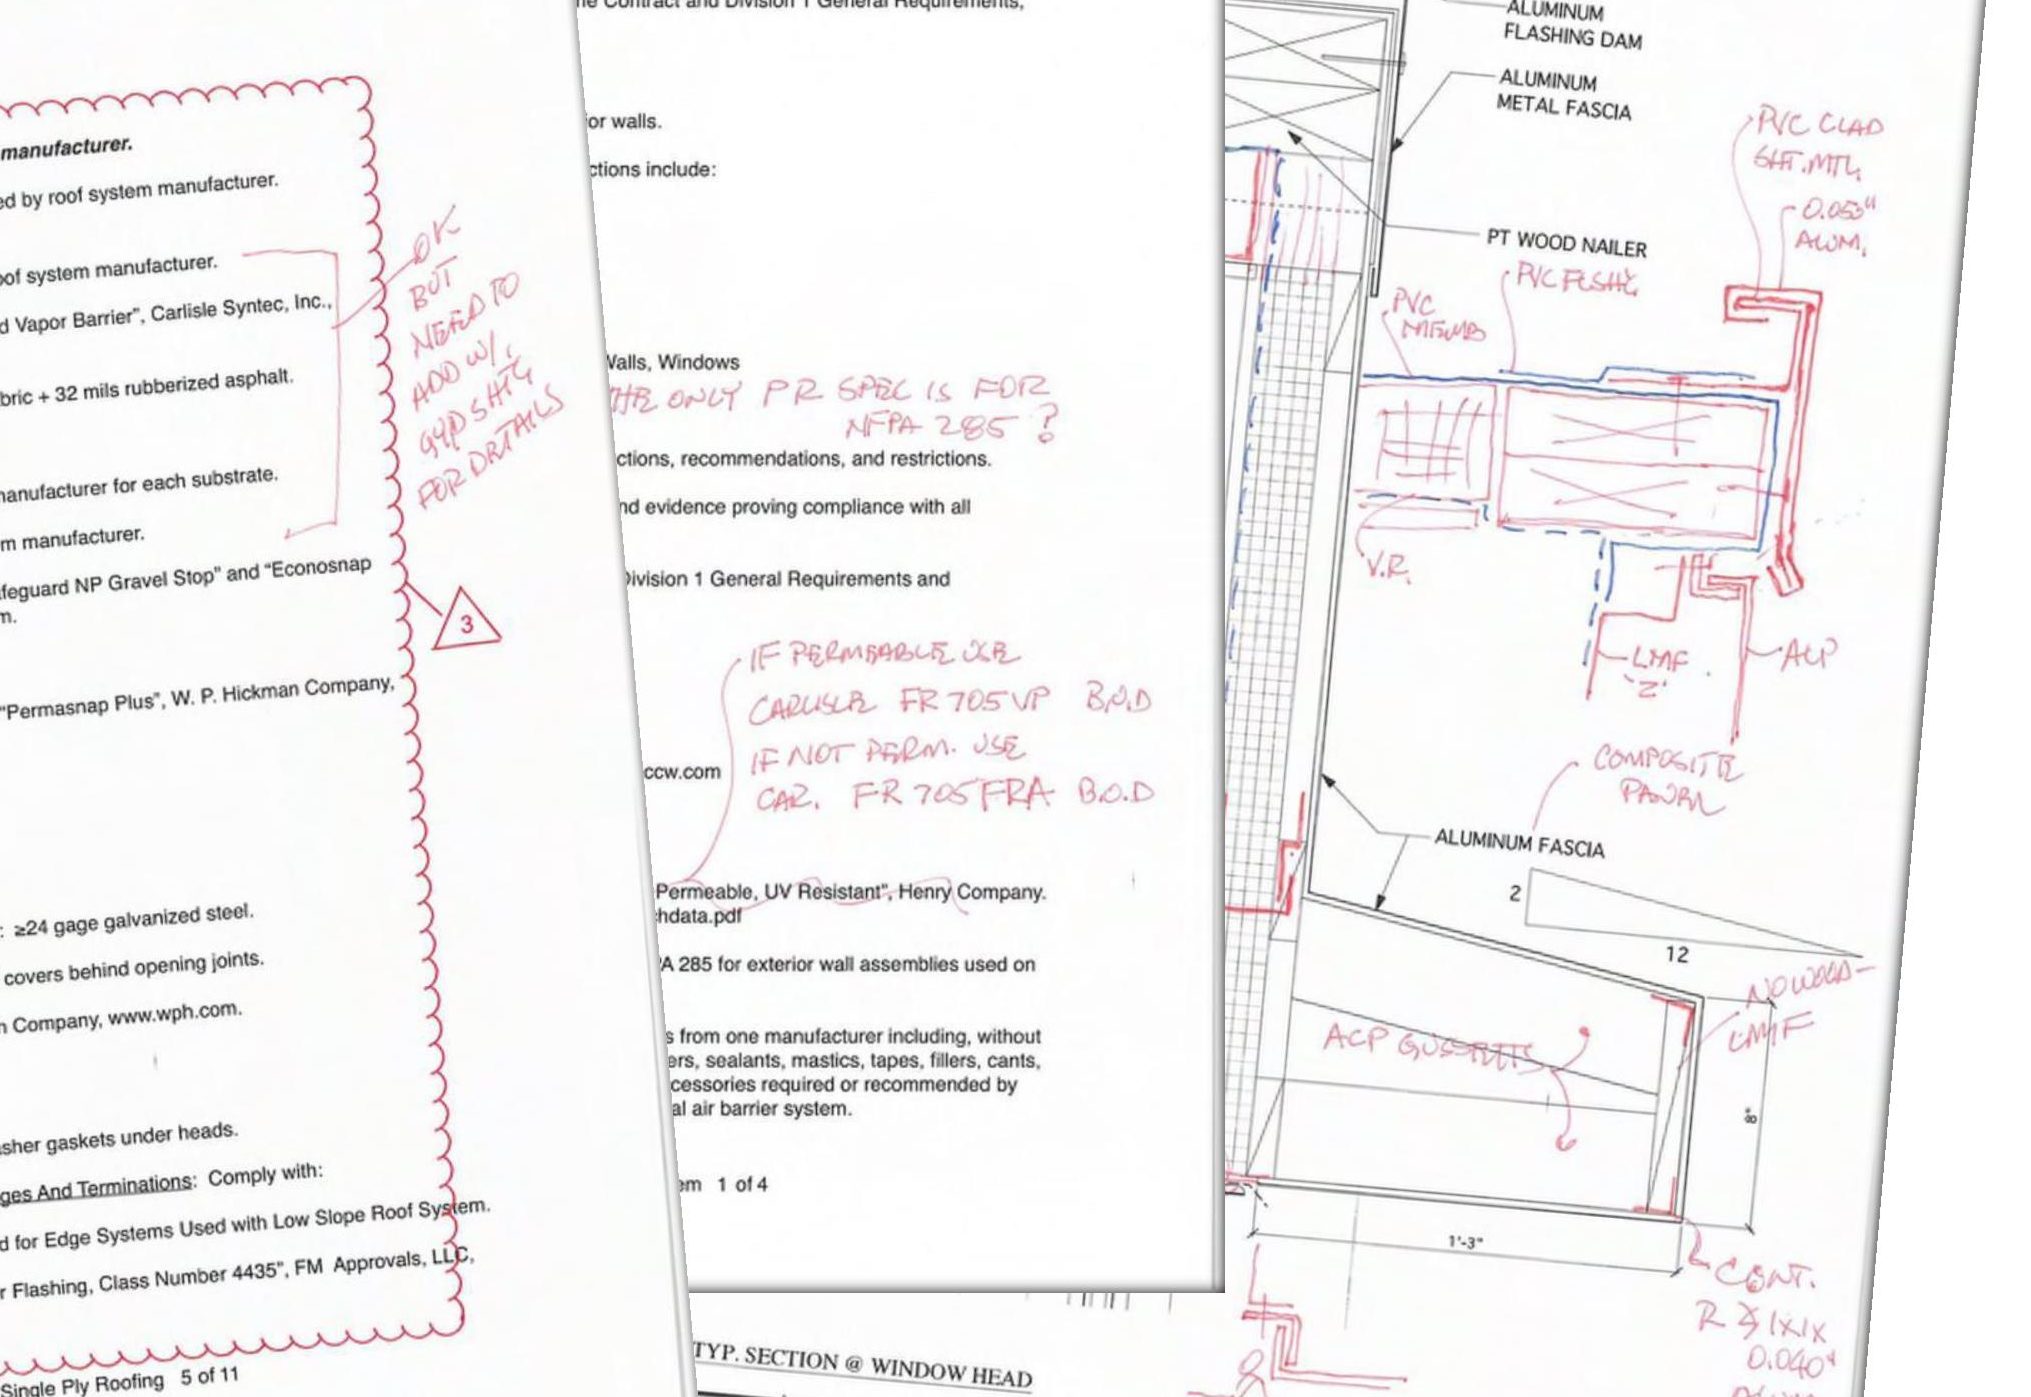 manufacturer.
ed by roof system manufacturer.
oof system manufacturer.
d Vapor Barrier”, Carlisle Syntec, Inc.,
bric + 32 mils rubberized asphalt.
manufacturer for each substrate.
m manufacturer.
feguard NP Gravel Stop” and “Econosnap
m.
OK
BUT
NEED TO
ADD W/
GYP SHTG
FOR DETAILS
3
“Permasnap Plus”, W. P. Hickman Company,
: ≥24 gage galvanized steel.
covers behind opening joints.
n Company, www.wph.com.
sher gaskets under heads.
ges And Terminations: Comply with:
d for Edge Systems Used with Low Slope Roof System.
r Flashing, Class Number 4435”, FM Approvals, LLC,
Single Ply Roofing 5 of 11
ne Contract and Division 1 General Requirements,
or walls.
ctions include:
Walls, Windows
THE ONLY PR SPEC IS FOR
NFPA 285 ?
ctions, recommendations, and restrictions.
nd evidence proving compliance with all
Division 1 General Requirements and
IF PERMEABLE USE
CARLISLE FR 705 VP B.O.D
IF NOT PERM. USE
CAR. FR 705 FRA B.O.D
ccw.com
Permeable, UV Resistant”, Henry Company.
hdata.pdf
A 285 for exterior wall assemblies used on
s from one manufacturer including, without
ers, sealants, mastics, tapes, fillers, cants,
cessories required or recommended by
al air barrier system.
em 1 of 4
ALUMINUM
FLASHING DAM
ALUMINUM
METAL FASCIA
PVC CLAD
SHT. MTL.
0.050"
ALUM.
PT WOOD NAILER
PVC FLSHG
PVC
MEMB
V.R.
LMF
'Z'
ACP
COMPOSITE
PANEL
ALUMINUM FASCIA
2
12
NO WOOD-
LMF
ACP GUSSETS
8"
1'-3"
CONT.
R 1x1x
0.040"
TYP. SECTION @ WINDOW HEAD